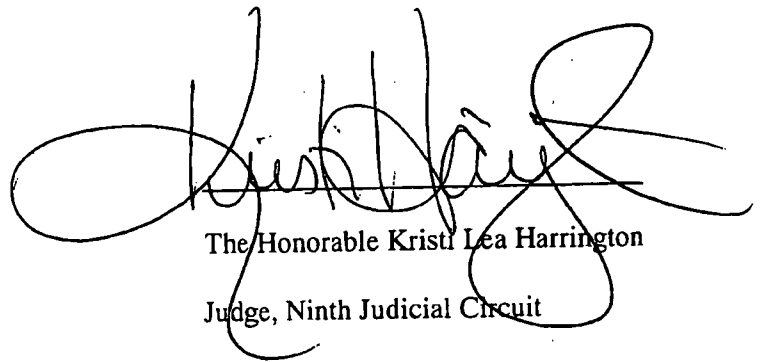 The Honorable Kristi Lea Harrington
Judge, Ninth Judicial Circuit